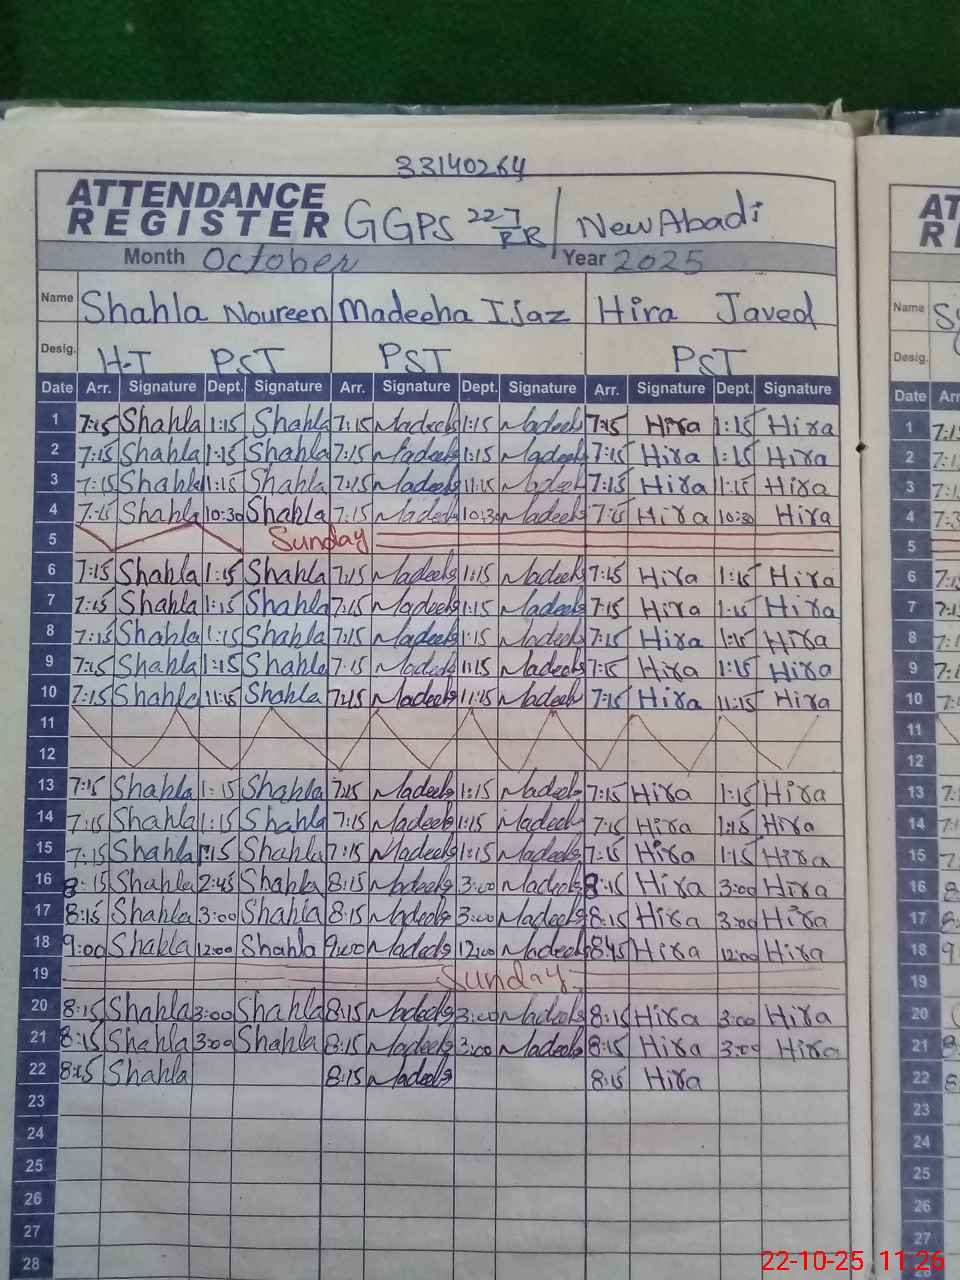 33140264
ATTENDANCE
REGISTER GGPS 227/RB / New Abadi
Month October Year 2025
Name Shahla Noureen Madeeha Ijaz Hira Javed
Desig. H-T PST PST PST
Date Arr. Signature Dept. Signature Arr. Signature Dept. Signature Arr. Signature Dept. Signature
1 7:15 Shahla 1:15 Shahla 7:15 Madeeha 1:15 Madeeha 7:15 Hira 1:15 Hira
2 7:15 Shahla 1:15 Shahla 7:15 Madeeha 1:15 Madeeha 7:15 Hira 1:15 Hira
3 7:15 Shahla 11:15 Shahla 7:15 Madeeha 11:15 Madeeha 7:15 Hira 11:15 Hira
4 7:15 Shahla 10:30 Shahla 7:15 Madeeha 10:30 Madeeha 7:15 Hira 10:30 Hira
5 Sunday
6 7:15 Shahla 1:15 Shahla 7:15 Madeeha 1:15 Madeeha 7:15 Hira 1:15 Hira
7 7:15 Shahla 1:15 Shahla 7:15 Madeeha 1:15 Madeeha 7:15 Hira 1:15 Hira
8 7:15 Shahla 1:15 Shahla 7:15 Madeeha 1:15 Madeeha 7:15 Hira 1:15 Hira
9 7:15 Shahla 1:15 Shahla 7:15 Madeeha 1:15 Madeeha 7:15 Hira 1:15 Hira
10 7:15 Shahla 11:15 Shahla 7:15 Madeeha 11:15 Madeeha 7:15 Hira 11:15 Hira
11
12
13 7:15 Shahla 1:15 Shahla 7:15 Madeeha 1:15 Madeeha 7:15 Hira 1:15 Hira
14 7:15 Shahla 1:15 Shahla 7:15 Madeeha 1:15 Madeeha 7:15 Hira 1:15 Hira
15 7:15 Shahla 1:15 Shahla 7:15 Madeeha 1:15 Madeeha 7:15 Hira 1:15 Hira
16 8:15 Shahla 2:45 Shahla 8:15 Madeeha 3:00 Madeeha 8:15 Hira 3:00 Hira
17 8:15 Shahla 3:00 Shahla 8:15 Madeeha 3:00 Madeeha 8:15 Hira 3:00 Hira
18 9:00 Shahla 12:00 Shahla 9:00 Madeeha 12:00 Madeeha 8:45 Hira 12:00 Hira
19 Sunday
20 8:15 Shahla 3:00 Shahla 8:15 Madeeha 3:00 Madeeha 8:15 Hira 3:00 Hira
21 8:15 Shahla 3:00 Shahla 8:15 Madeeha 3:00 Madeeha 8:15 Hira 3:00 Hira
22 8:15 Shahla 8:15 Madeeha 8:15 Hira
23
24
25
26
27
28
Name
Desig.
Date
1
2
3
4
5
6
7
8
9
10
11
12
13
14
15
16
17
18
19
20
21
22
23
24
25
26
27
22-10-25 11:26